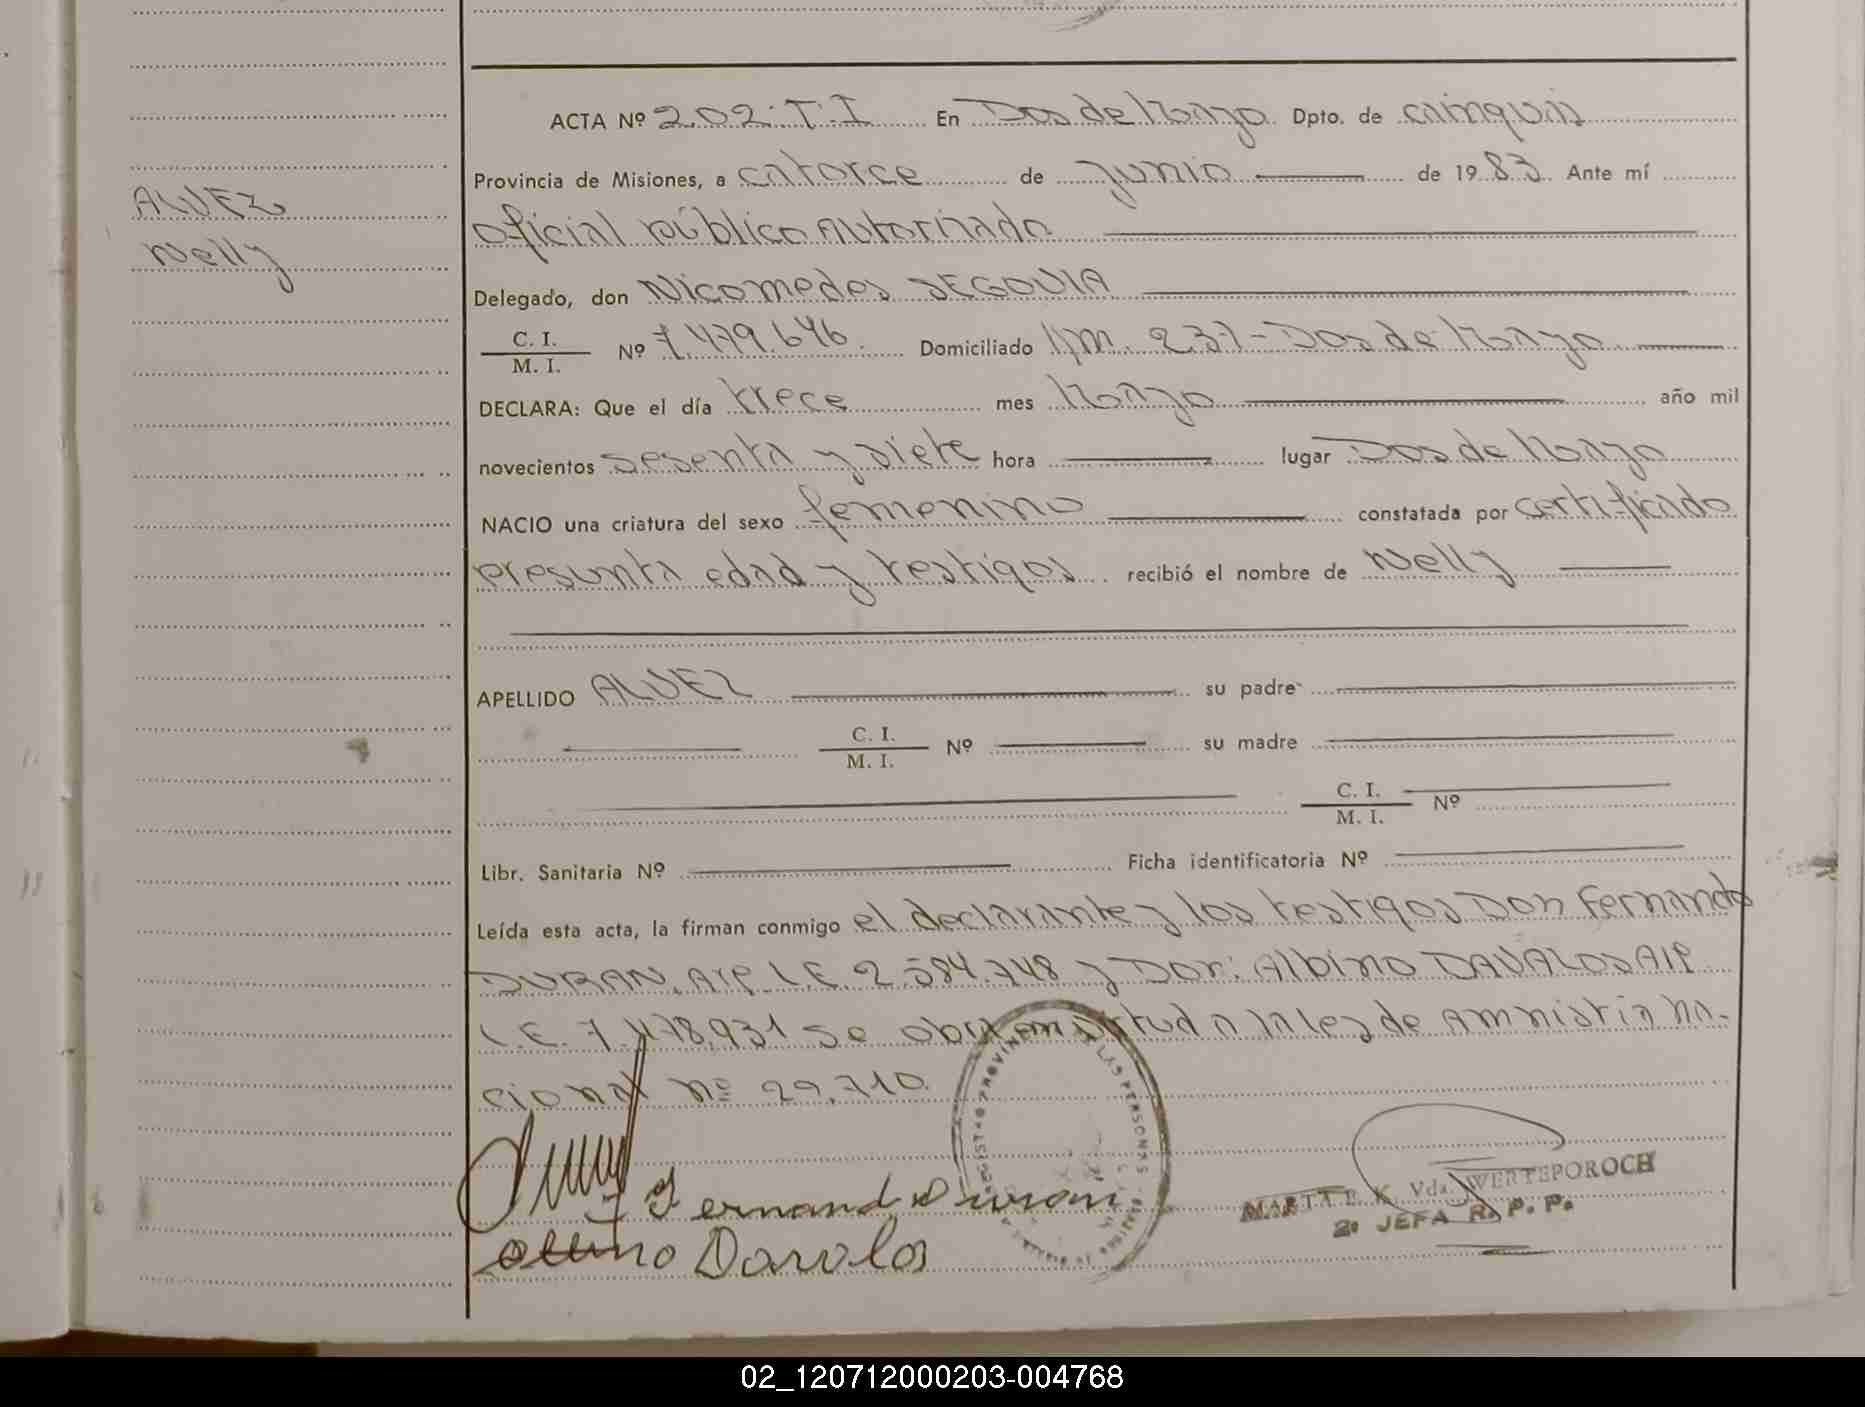 ACTA Nº 202·T·I En Dos de Mayo Dpto. de cainguas
ALVEZ
Nelly
Provincia de Misiones, a catorce de junio de 1983 Ante mí
oficial público autorizado
Delegado, don Nicomedes SEGOVIA
C. I.
M. I. Nº 7.479.646. Domiciliado Km. 237-Dos de Mayo
DECLARA: Que el día trece mes Mayo año mil
novecientos sesenta y siete hora lugar Dos de Mayo
NACIO una criatura del sexo femenino constatada por certificado
presunta edad y testigos recibió el nombre de Nelly
APELLIDO ALVEZ su padre
C. I.
M. I. Nº su madre
C. I.
M. I. Nº
Libr. Sanitaria Nº Ficha identificatoria Nº
Leída esta acta, la firman conmigo el declarante y los testigos Don Fernando
DURAN, AIP. L.E. 2.584.748 y Don: Albino DAVALOS AIP
L.E. 7.478.931 se obra en virtud a la ley de amnistia na-
cional nº 22.710.
Fernando Duran
Albino Davalos
PROVINCI LAS PERSONAS
Vda. WERTEPOROCH
2º JEFA R. P. P.
02_120712000203-004768